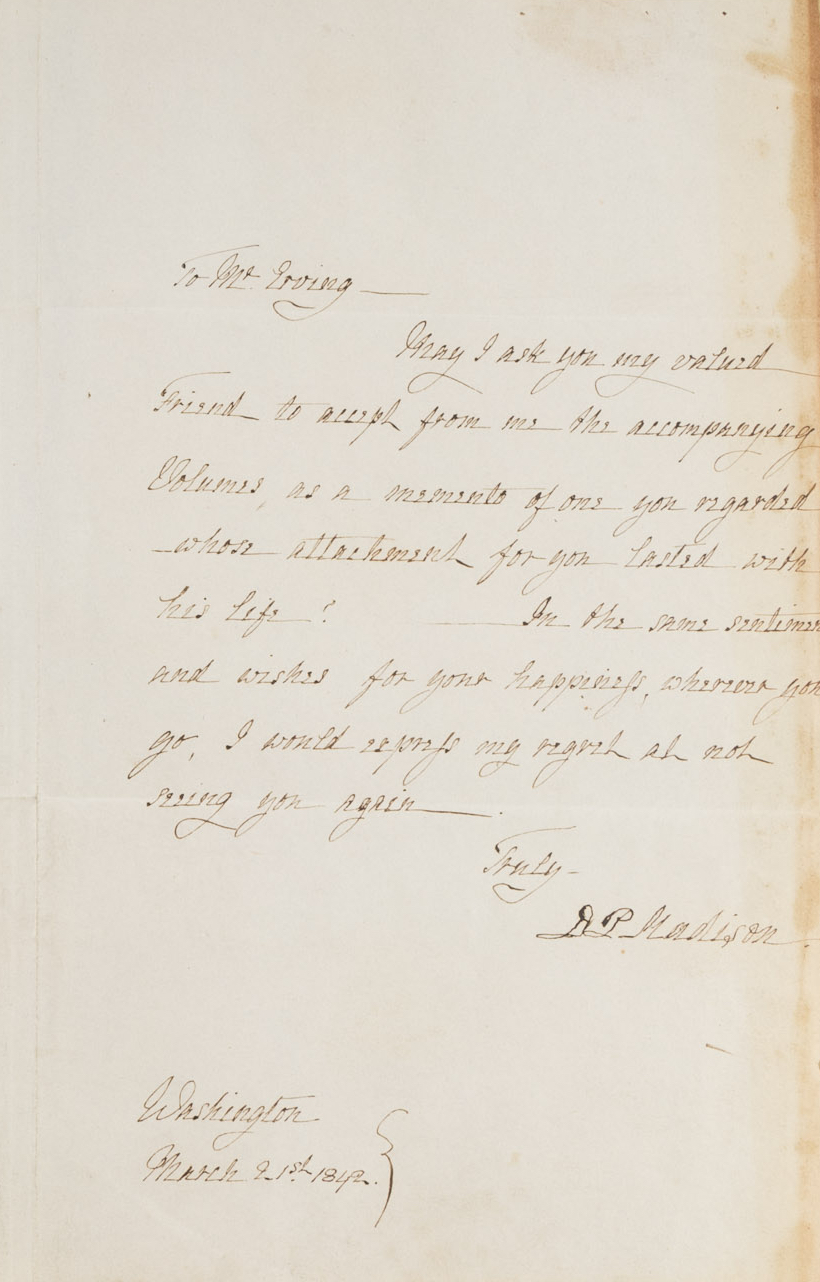 To Mr. Erving —
May I ask you my valued
Friend to accept from me the accompanying
Volumes, as a memento of one you regarded
—whose attachment for you lasted with
his life! — In the same sentimen
and wishes for your happiness, wherever you
go, I would express my regret at not
seeing you again —.
Truly —
D P Madison.
Washington
March 21st. 1842.